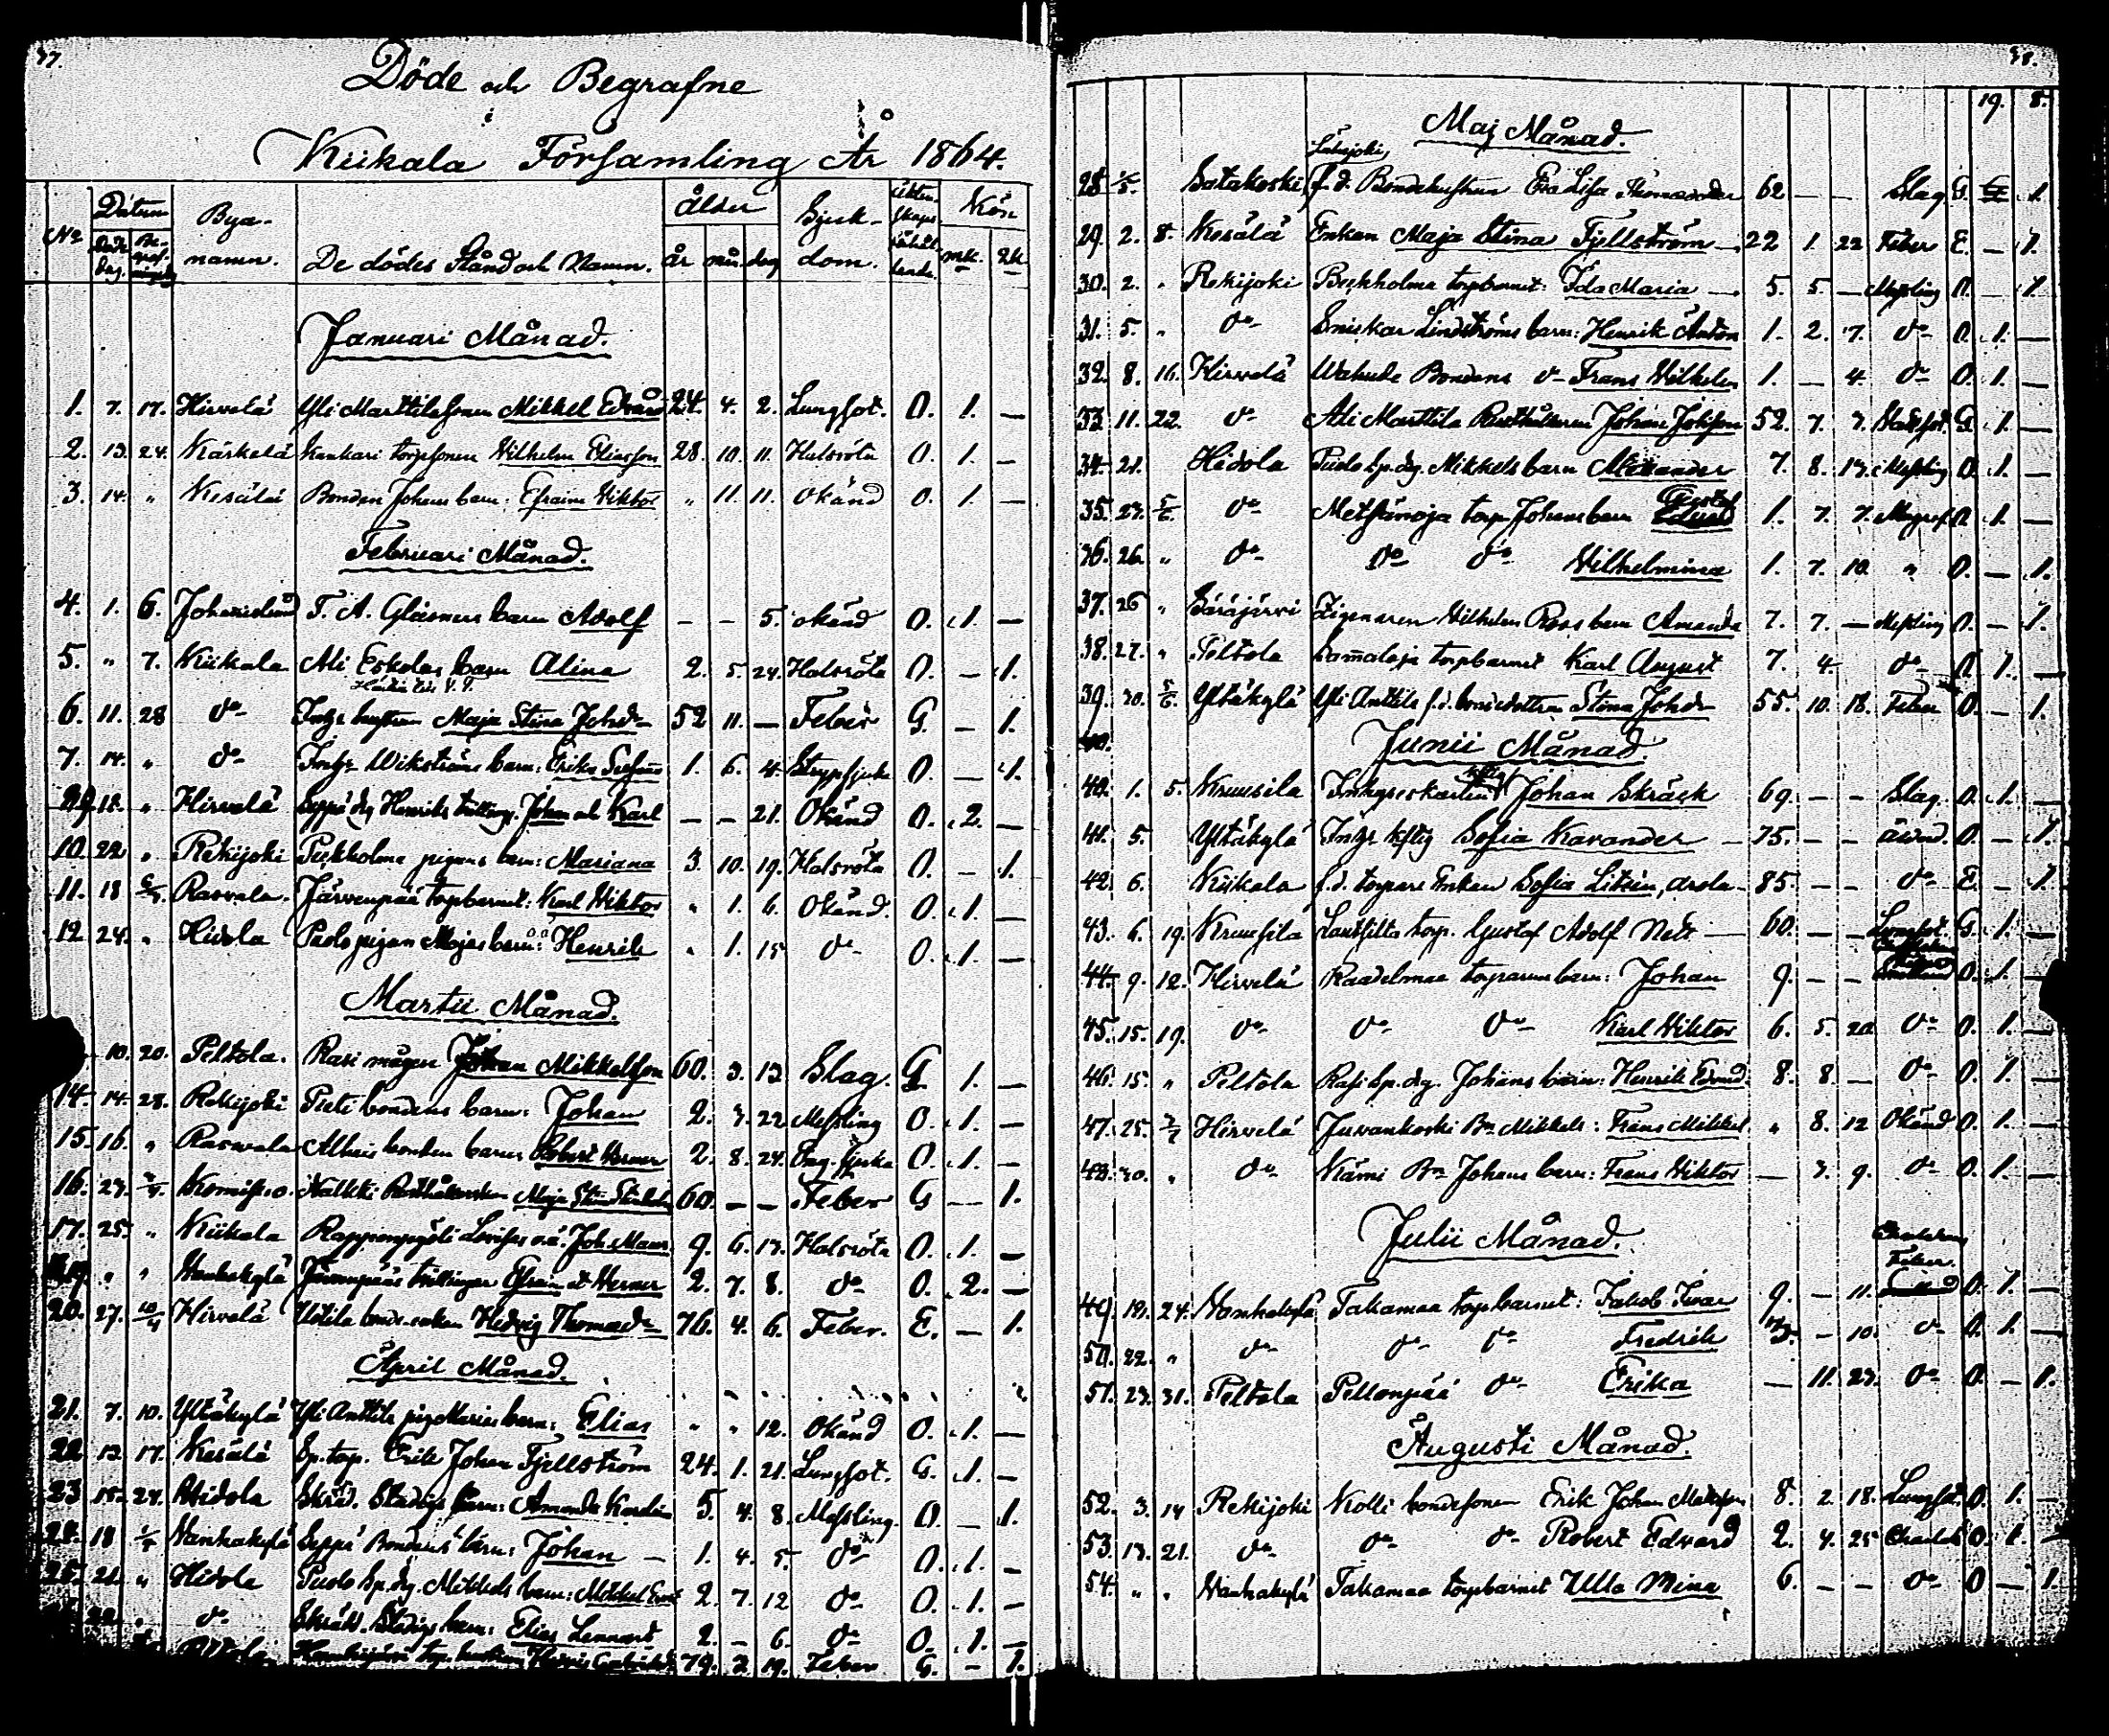 37.
Döde och Begrafne
i
Kiikala Församling År 1864.
No Datum Bya-namn. De dödes Stånd och Namn. ålder Sjuk-dom. Kön
Död dag år mån dag mk. qk.
Januari Månad.
1. 7. 17. Hirvelä Yli Marttila sonen Mikkel Edvard 24. 4. 2. Lungsot. O. 1. —
2. 13. 24. Kärkelä Kankari torpsonen Wilhelm Eliasson 28. 10. 11. Halsröta O. 1. —
3. 14. " Kesälä Bonden Johans barn: Efraim Viktor " 11. 11. Okänd O. 1. —
Februari Månad.
4. 1. 6. Johanislund T. A. Glasmers barn Adolf — — 5. okänd O. 1. —
5. " 7. Kiikala Ali Eskolas barn Alina 2. 5. 24. Halsröta O. — 1.
6. 11. 28 do Inhys hustrun Maja Stina Johsdr 52 11. — Feber G. — 1.
7. 14. " do Inhys Wikströms barn: Erika Sefina 1. 6. 4. Strypsjuka O. — 1.
8 9 18. " Hirvelä Seppä drg Henriks tvilling: Johan och Karl — — 21. Okänd O. 2. —
10. 22 " Rekijoki Pickholma pigans barn: Mariana 3. 10. 19. Halsröta O. — 1.
11. 18 6/3 Rasvala. Järvenpää torpbarnet: Karl Viktor " 1. 6. Okänd. O. 1. —
12 24. " Hidola Puolo pigan Majas barn: Henrik " 1. 15 do O. 1. —
Martii Månad.
10. 20. Peltola. Rasi mågen Johan Mikkelsson 60. 3. 13 Slag. G 1. —
14. 14. 28. Rekijoki Pieti bondens barn: Johan 2. 3. 22 Messling O. 1. —
15. 16. " Rasvala Alhais bonden barn Robert Verner 2. 8. 24. Eng. sjuka O. 1. —
16. 23. Komisuo. Nalkki Maja Stina 60. — — Feber G — 1.
17. 25. " Kiikala 9. 6. 13. Halsröta O. 1. —
" " Wanhakylä Järvenpääs tvillingar Efraim et Verner 2. 7. 8. do O. 2. —
20. 27. 10/4 Hirvelä Uotila bonde-enkan Hedvig Thomasdr 76. 4. 6. Feber. E. — 1.
April Månad.
21. 7. 10. Yltäkylä Yli Anttila pig. Marias barn: Elias " " 12. Okänd O. 1. —
22 13. 17. Kesälä Sp. torp. Erik Johan Fjellström 24. 1. 21. Lungsot. G. 1. —
23 15. 24. Hidola Skräd. Stadigs barn: Amanda Karolin 5. 4. 8. Messling. O. — 1.
24. 18 1/5 Wanhakylä Seppä Bondens barn: Johan — 1. 4. 5. do O. 1. —
25. 21. " Hidola Puolo Sp. drg. Mikkels barn: Mikkel 2. 7. 12 do O. 1. —
22. " do Skrädd. Stadigs barn: Elias Lennart 2. — 6. do O. 1. —
79. 2. 19. Feber G. — 1.
38.
19. 8.
Maj Månad.
28 Satakoski f. d. Bondehustrun Eva Lisa Thomasdr 62 — — Slag G. 1.
29. 2. 8. Kesälä Enkan Maja Stina Fjellström — 22 1. 22 Feber E. — 1.
30. 2. " Rekijoki Beckholma torpbarnet: Ida Maria — 5. 5. — Messling O. — 1.
31. 5. " do Snickar Lindströms barn: Henrik Anton 1. 2. 7. do O. 1. —
32. 8. 16. Hirvelä Wahude Bondens do Frans Wilhelm 1. — 4. do O. 1. —
33 11. 22. do Ali Marttila Rusthållaren Johan Johsson 52. 7. 7. G. 1. —
34. 21. Hidola Puolo Sp. drg. Mikkels barn Alexander 7. 8. 13. Messling O. 1. —
35. 23. 5/6. do Metsänoja torp. Johans barn Gustaf 1. 7. 7. O. 1. —
36. 26. " do do do Wilhelmina 1. 7. 10. " O. — 1.
37. 26 " Saräjärvi Zigenaren Wilhelm Roos barn Amanda 7. 7. — Messling O. — 1.
38. 27. " Peltola Sammaloja torpbarnet Karl August 7. 4. do O. 1. —
39. 30. 5/6. Yltäkylä Yli Anttila f. d. bondedottren Stina Johsdr 55. 10. 18. Feber O. — 1.
Junii Månad.
40. 1. 5. Kruusila Johan Skräck 69. — — Slag. O. 1. —
41. 5. Yltäkylä Inhys hftig Sofia Kavander — 75. — — ålrd. O. — 1.
42 6. Kiikala f. d. torpare Enkan Sofia Litzén, arola — 85. — — do E. — 1.
43. 6. 19. Kruusila torp. Gustaf Adolf — 60. — — Lungsot G. 1. —
44. 9. 12. Hirvelä Raadelmaa torparens barn: Johan 9. — — O. 1. —
45. 15. 19. do do do Karl Viktor 6. 5. 20. do O. 1. —
46. 15. " Peltola Rasi Sp. drg. Johans barn: Henrik Edvard. 8. 8. — do O. 1. —
47. 25. 3/7 Hirvelä Juvankoski Bn Mikkels: Frans Mikkel " 8. 12 Okänd O. 1. —
48. 30. " do Kämi Bn Johans barn: Frans Viktor — 3. 9. do O. 1. —
Julii Månad.
Feber.
49. 19. 24. Wanhakylä Takamaa torpbarnet: Jakob Ivar 9. — 11. O. 1. —
50. 22. " do do do Fredrik — 10. do O. 1. —
51. 23. 31. Peltola Pellonpää do Erika — 11. 23. do O. — 1.
Augusti Månad.
52. 3. 14 Rekijoki Kolli bondesonen Erik Johan 8. 2. 18. Lungsot O. 1. —
53. 13. 21. do do do Robert Edvard 2. 4. 25 O. 1. —
54. " " Wanhakylä Takamaa torpbarnet Ulla Mina 6. — — do O — 1.